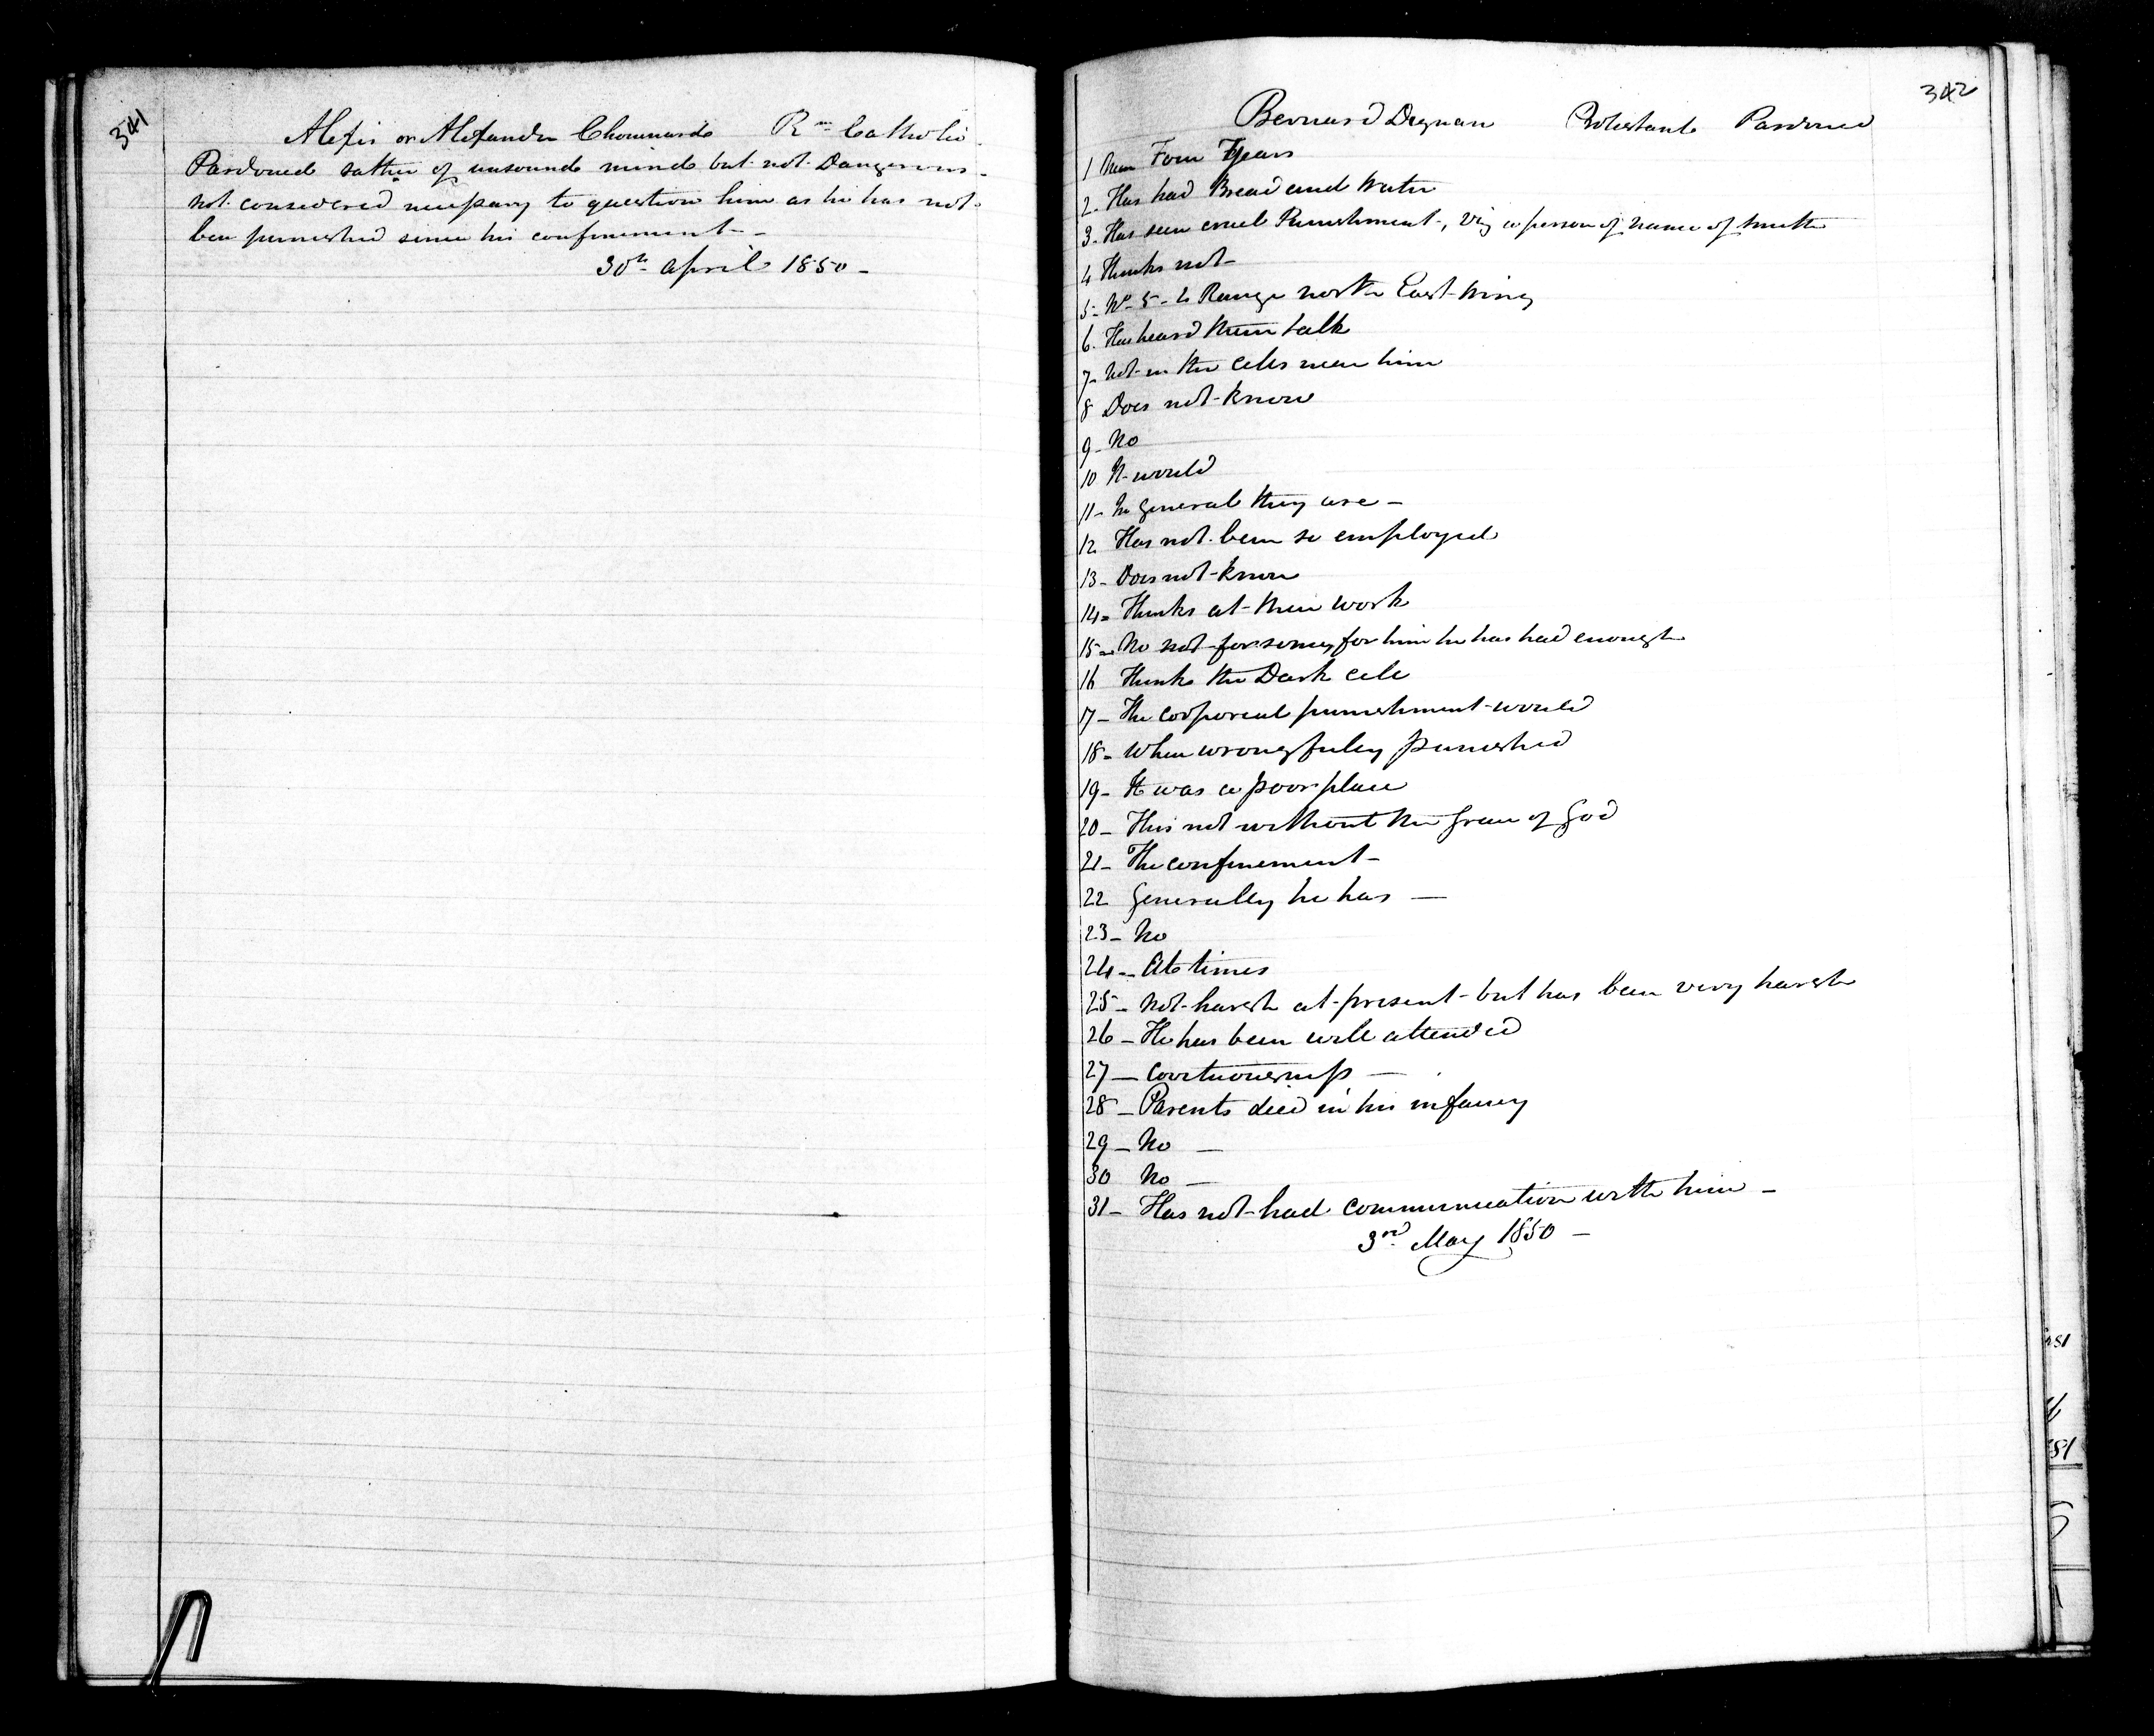 341
Alexis or Alexander Chouinard Rm Catholic
Pardoned rather of unsound mind but not Dangerous -
not considered necessary to question him as he has not
been punished since his confinement -
30th April 1850 -
342
Bernard Degnan Protestant Pardoned
1 Near Four Years
2. Has had Bread and Water
3. Has seen cruel Punishment, viz a person of name of Smith
4 Thinks not -
5 - No 5 - 4 Range North East Wing
6. Has heard them talk
7 - Not in the cells near him
8 Does not know
9 - No
10 It would
11 - In general they are -
12 Has not been so employed
13 - Does not know
14 - Thinks at their work
15 - No not for some, for him he has had enough
16 Thinks the Dark cell
17 - The corporeal punishment would
18 - When wrongfully punished
19 - It was a poor place
20 - This not without the Grace of God
21 - The confinement -
22 Generally he has —
23 - No
24 - At times
25 - Not harsh at present - but has been very harsh
26 - He has been well attended
27 —
28 - Parents died in his infancy
29 - No —
30 No —
31 - Has not had communication with him -
3rd May 1850 -